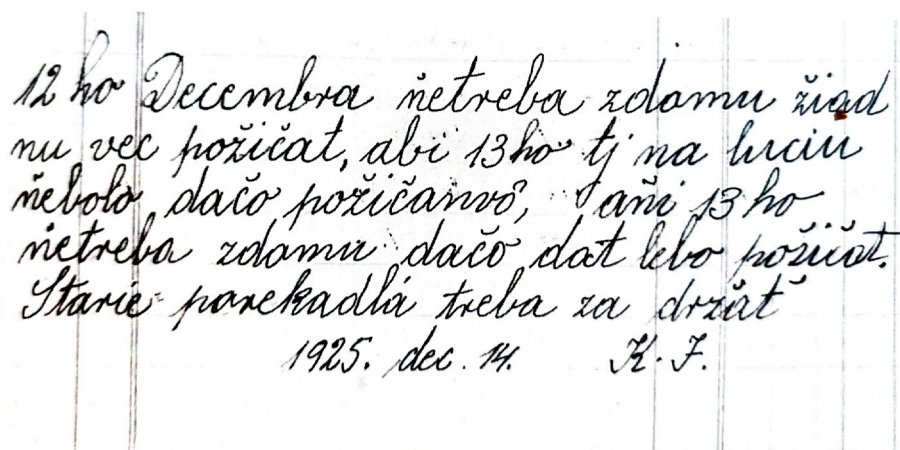 12 ho Decembra ňetreba zdomu žiad
nu vec požičat, abi 13 ho tj na luciu
ňebolo dačo požičanvô, aňi 13 ho
ňetreba zdomu dačo dat lebo požičat.
Starie porekadlá treba za držať
1925. dec. 14. K. F.